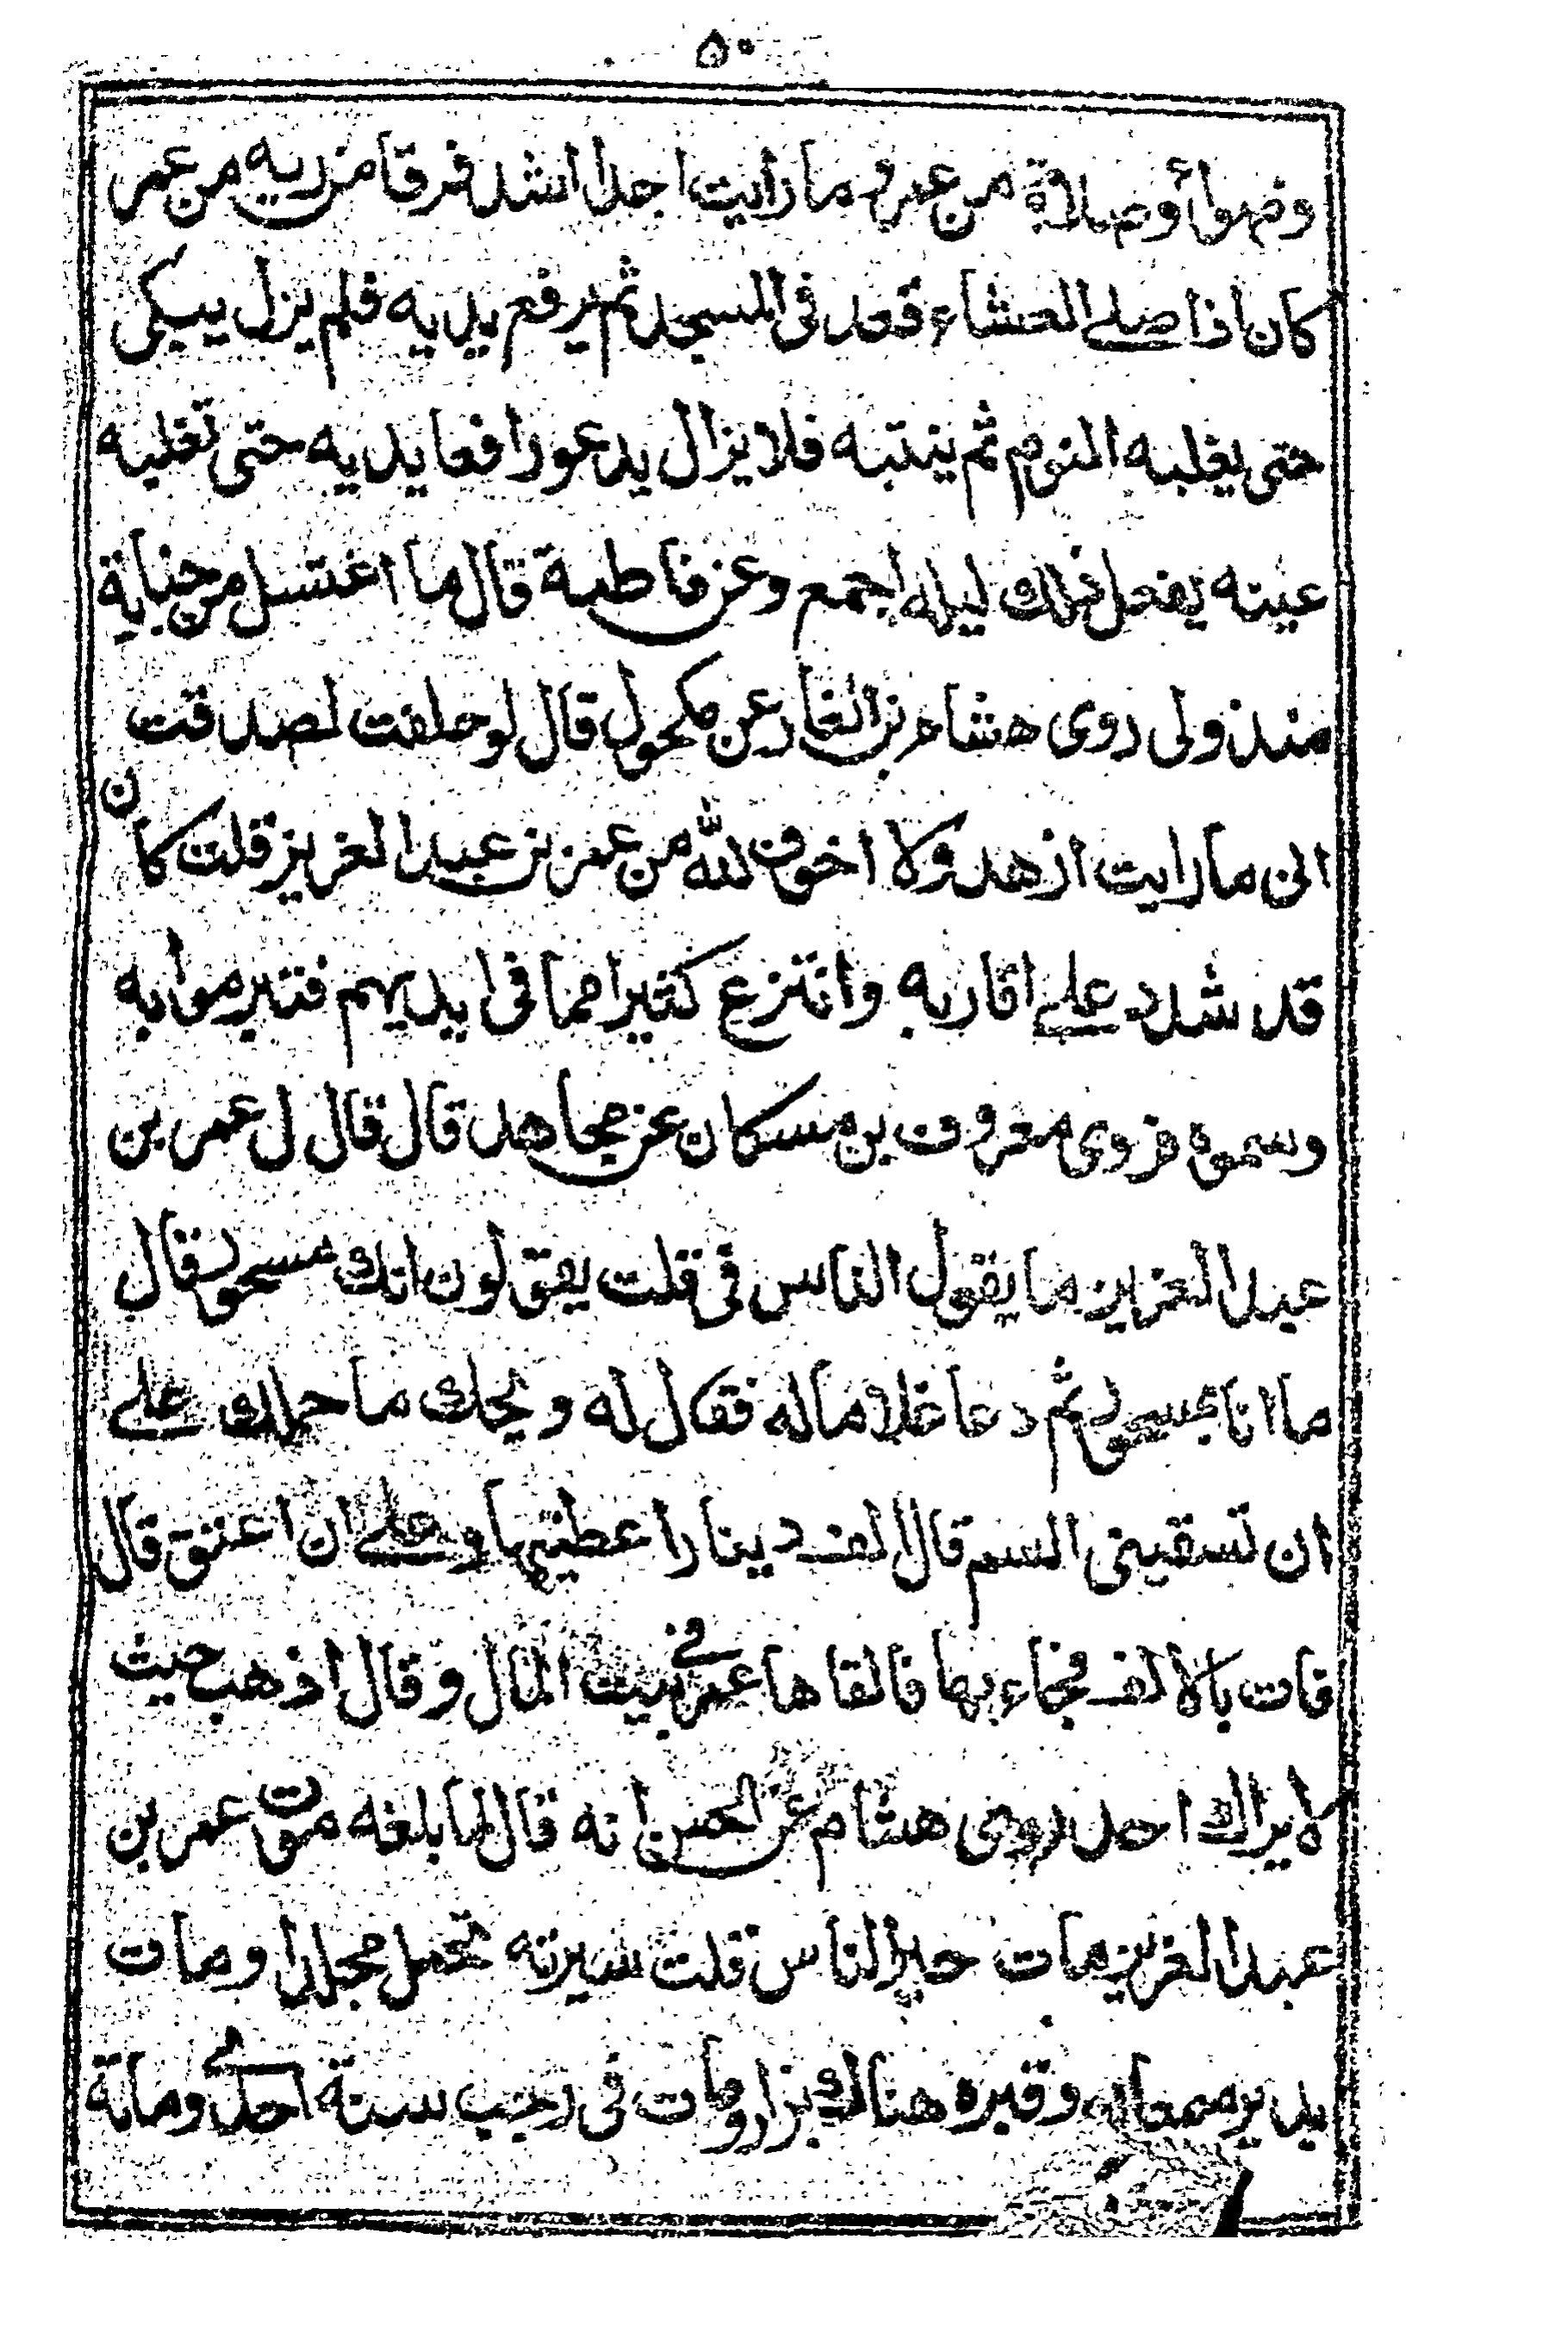 ٥٠
وضوأ وصلاة من عمر و ما رايت احدا اشد فرقا من ربه من عمر
كان اذا صلے العشاء قعد فى المسجد ثم يرفع يديه فلم يزل يبكى
حتى يغلبه النوم ثم ينتبه فلا يزال يدعو رافعا يديه حتى تغلبه
عينه يفعل ذلك ليله اجمع وعن فاطمة قال ما اغتسل من جنابة
منذ ولى روى هشام بن الغار عن مكحول قال لو حلفت لصدقت
انى ما رايت ازهد ولا اخوف لله من عمر بن عبد العزيز قلت كان
قد شدد علے اقاربه وانتزع كثيرا مما فى ايديهم فتبرموا به
وسموه فروى معروف بن مسكان عن مجاهد قال قال ل عمر بن
عبد العزيز ما يقول الناس فى قلت يقولون انك مسحور قال
ما انا بمسحور ثم دعا غلاما له فقال له ويحك ما حملك علے
ان تسقينى السم قال الف دينار اعطيتها وعلے ان اعتق قال
هات بالالف فجاء بها فالقاها عمر فے بيت المال وقال اذهب حيث
لا يراك احد روى هشام عن الحسن انه قال لما بلغه موت عمر بن
عبد العزيز مات خير الناس قلت سيرته تحمل مجلدا ومات
بدير سمعان وقبره هناك يزار ومات فى رجب سنة احدے ومائة